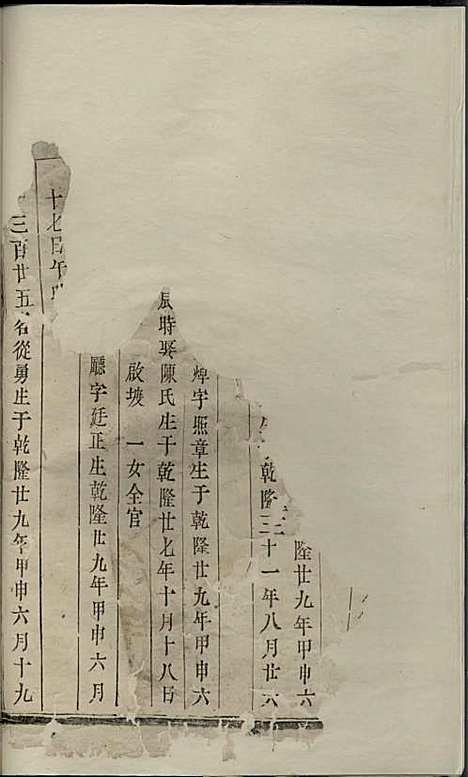 隆廿九年甲申六
乾隆三十一年八月廿六
煒字照章生于乾隆廿九年甲申六
辰時娶陳氏生于乾隆廿七年十月十八日
啟坡 一女全官
廳字廷正生乾隆廿九年甲申六月
十七日午
三百廿五名從勇生于乾隆廿九年甲申六月十九